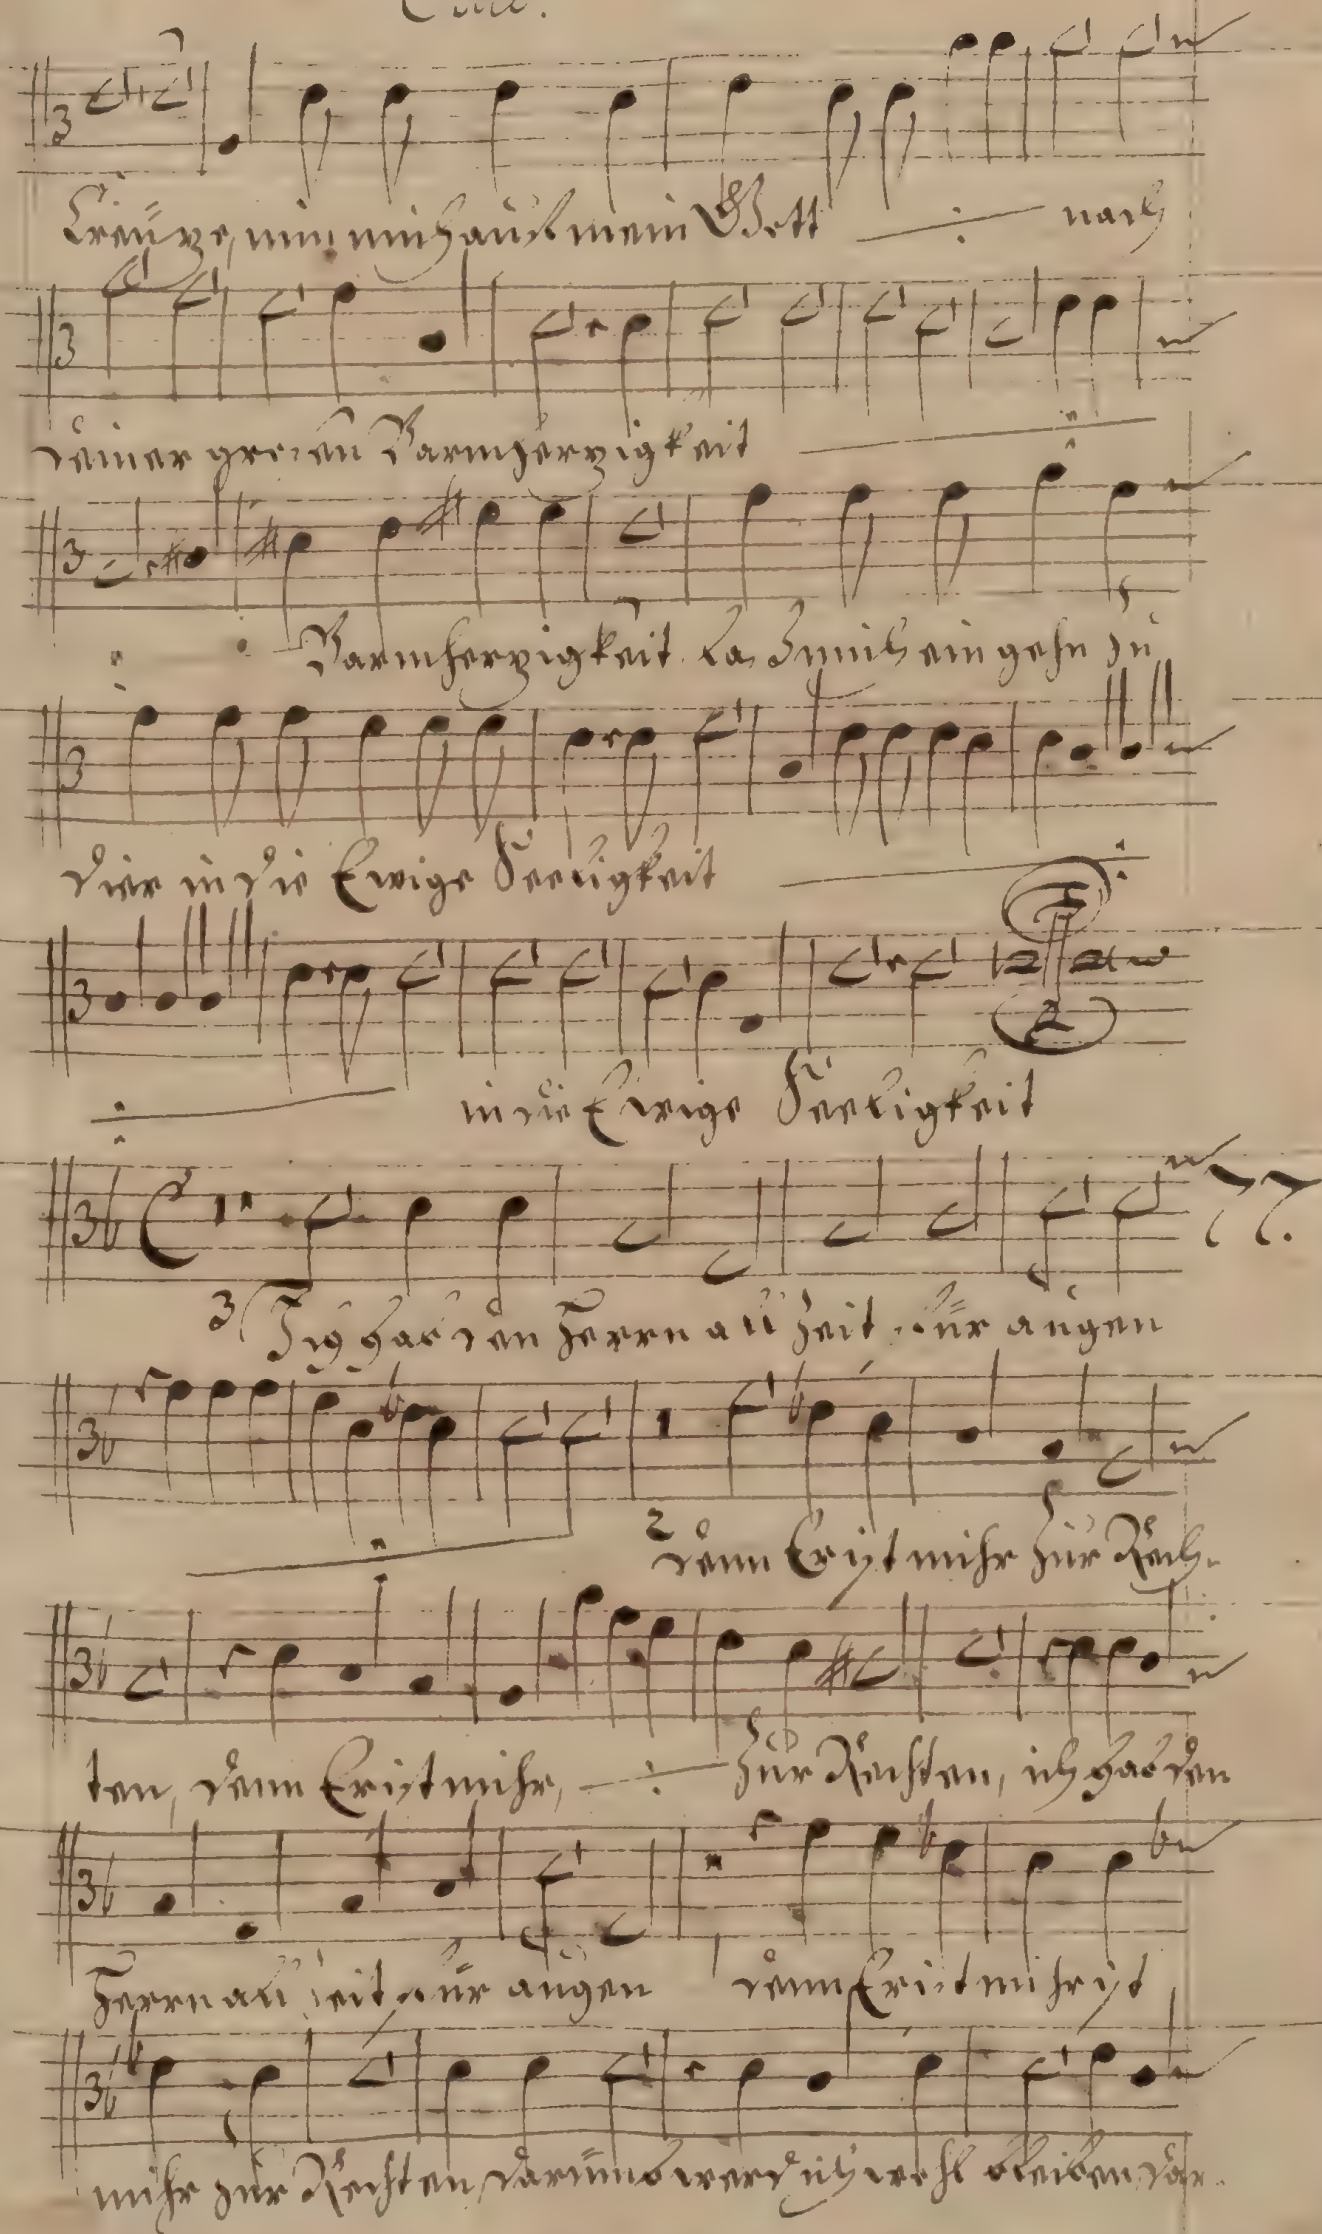 Creütze, nim mich auß mein Gott ·/· nach
deiner großen Barmhertzigkeit ·/·
·/· Barmhertzigkeit. Laß mich ein gehn zu
dier in die Ewige Seeligkeit ·/·
·/· in die Ewige Seeligkeit
77.
3 Ich hab den Herrn all Zeit für augen
·/· 2 denn Er ist mihr Zur Rech-
ten, denn Er ist mihr, ·/· Zur Rechten, ich hab den
Herrn all Zeit für augen denn Er ist mihr ist
mihr zur Rechten darümb werd ich wohl bleiben dar-